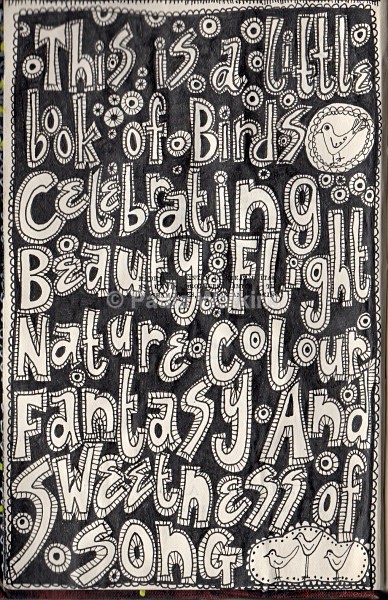 This is a little
book of Birds
Celebrating
Beauty Flight
Nature Colour
Fantasy And
Sweetness of
Song